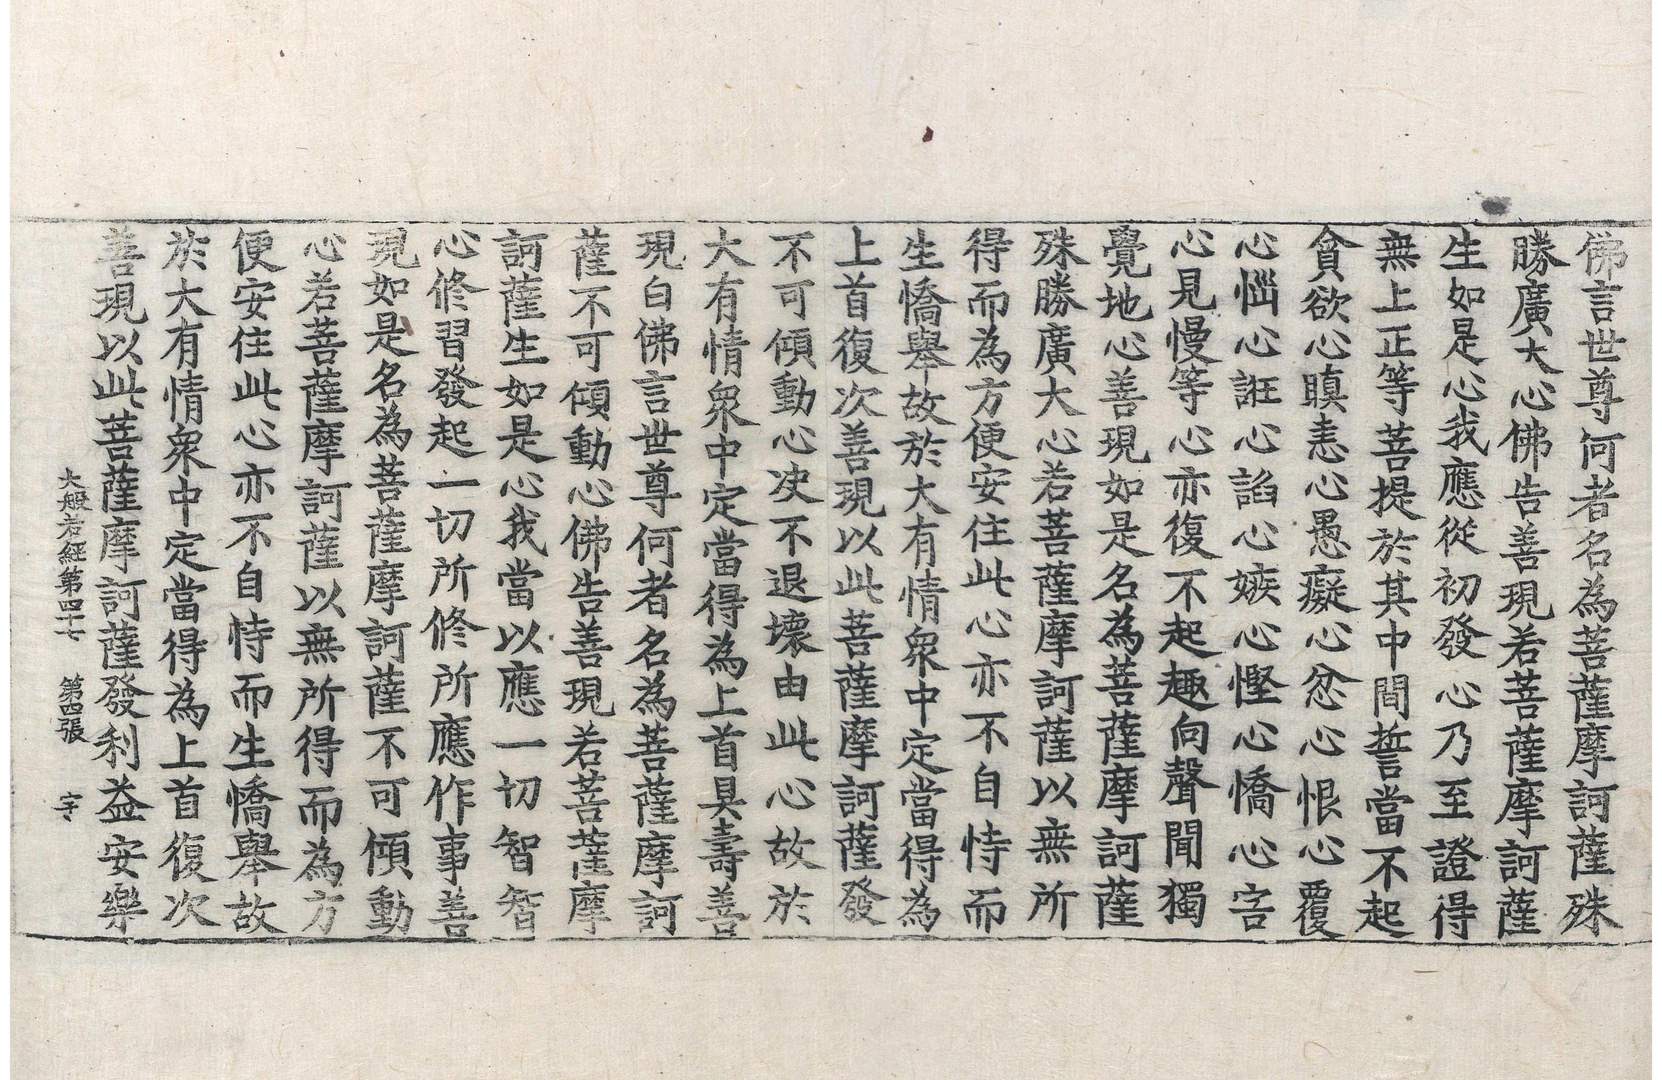 佛言世尊何者名為菩薩摩訶薩殊
勝廣大心佛告善現若菩薩摩訶薩
生如是心我應從初發心乃至證得
無上正等菩提於其中間誓當不起
貪欲心瞋恚心愚癡心忿心恨心覆
心惱心誑心諂心嫉心慳心憍心害
心見慢等心亦復不起趣向聲聞獨
覺地心善現如是名為菩薩摩訶薩
殊勝廣大心若菩薩摩訶薩以無所
得而為方便安住此心亦不自恃而
生憍舉故於大有情衆中定當得為
上首復次善現以此菩薩摩訶薩發
不可傾動心决不退壞由此心故於
大有情衆中定當得為上首具壽善
現白佛言世尊何者名為菩薩摩訶
薩不可傾動心佛告善現若菩薩摩
訶薩生如是心我當以應一切智智
心修習發起一切所修所應作事善
現如是名為菩薩摩訶薩不可傾動
心若菩薩摩訶薩以無所得而為方
便安住此心亦不自恃而生憍舉故
於大有情衆中定當得為上首復次
善現以此菩薩摩訶薩發利益安樂
大般若經第四十七　第四張　宇